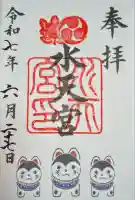 奉拝
水天宮
令和七年
六月二十七日